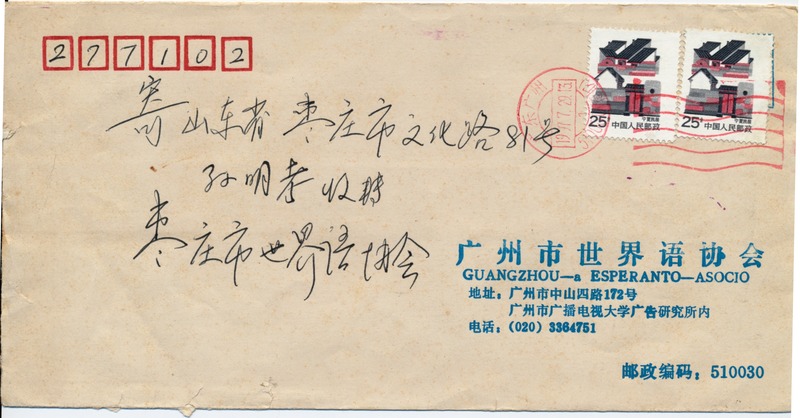 277102
寄 山东省枣庄市文化路81号
孙明孝收转
枣庄市世界语协会
25分
中国人民邮政
25分
中国人民邮政
广州市世界语协会
GUANGZHOU—a ESPERANTO—ASOCIO
地址：广州市中山四路172号
广州市广播电视大学广告研究所内
电话：(020) 3364751
邮政编码：510030